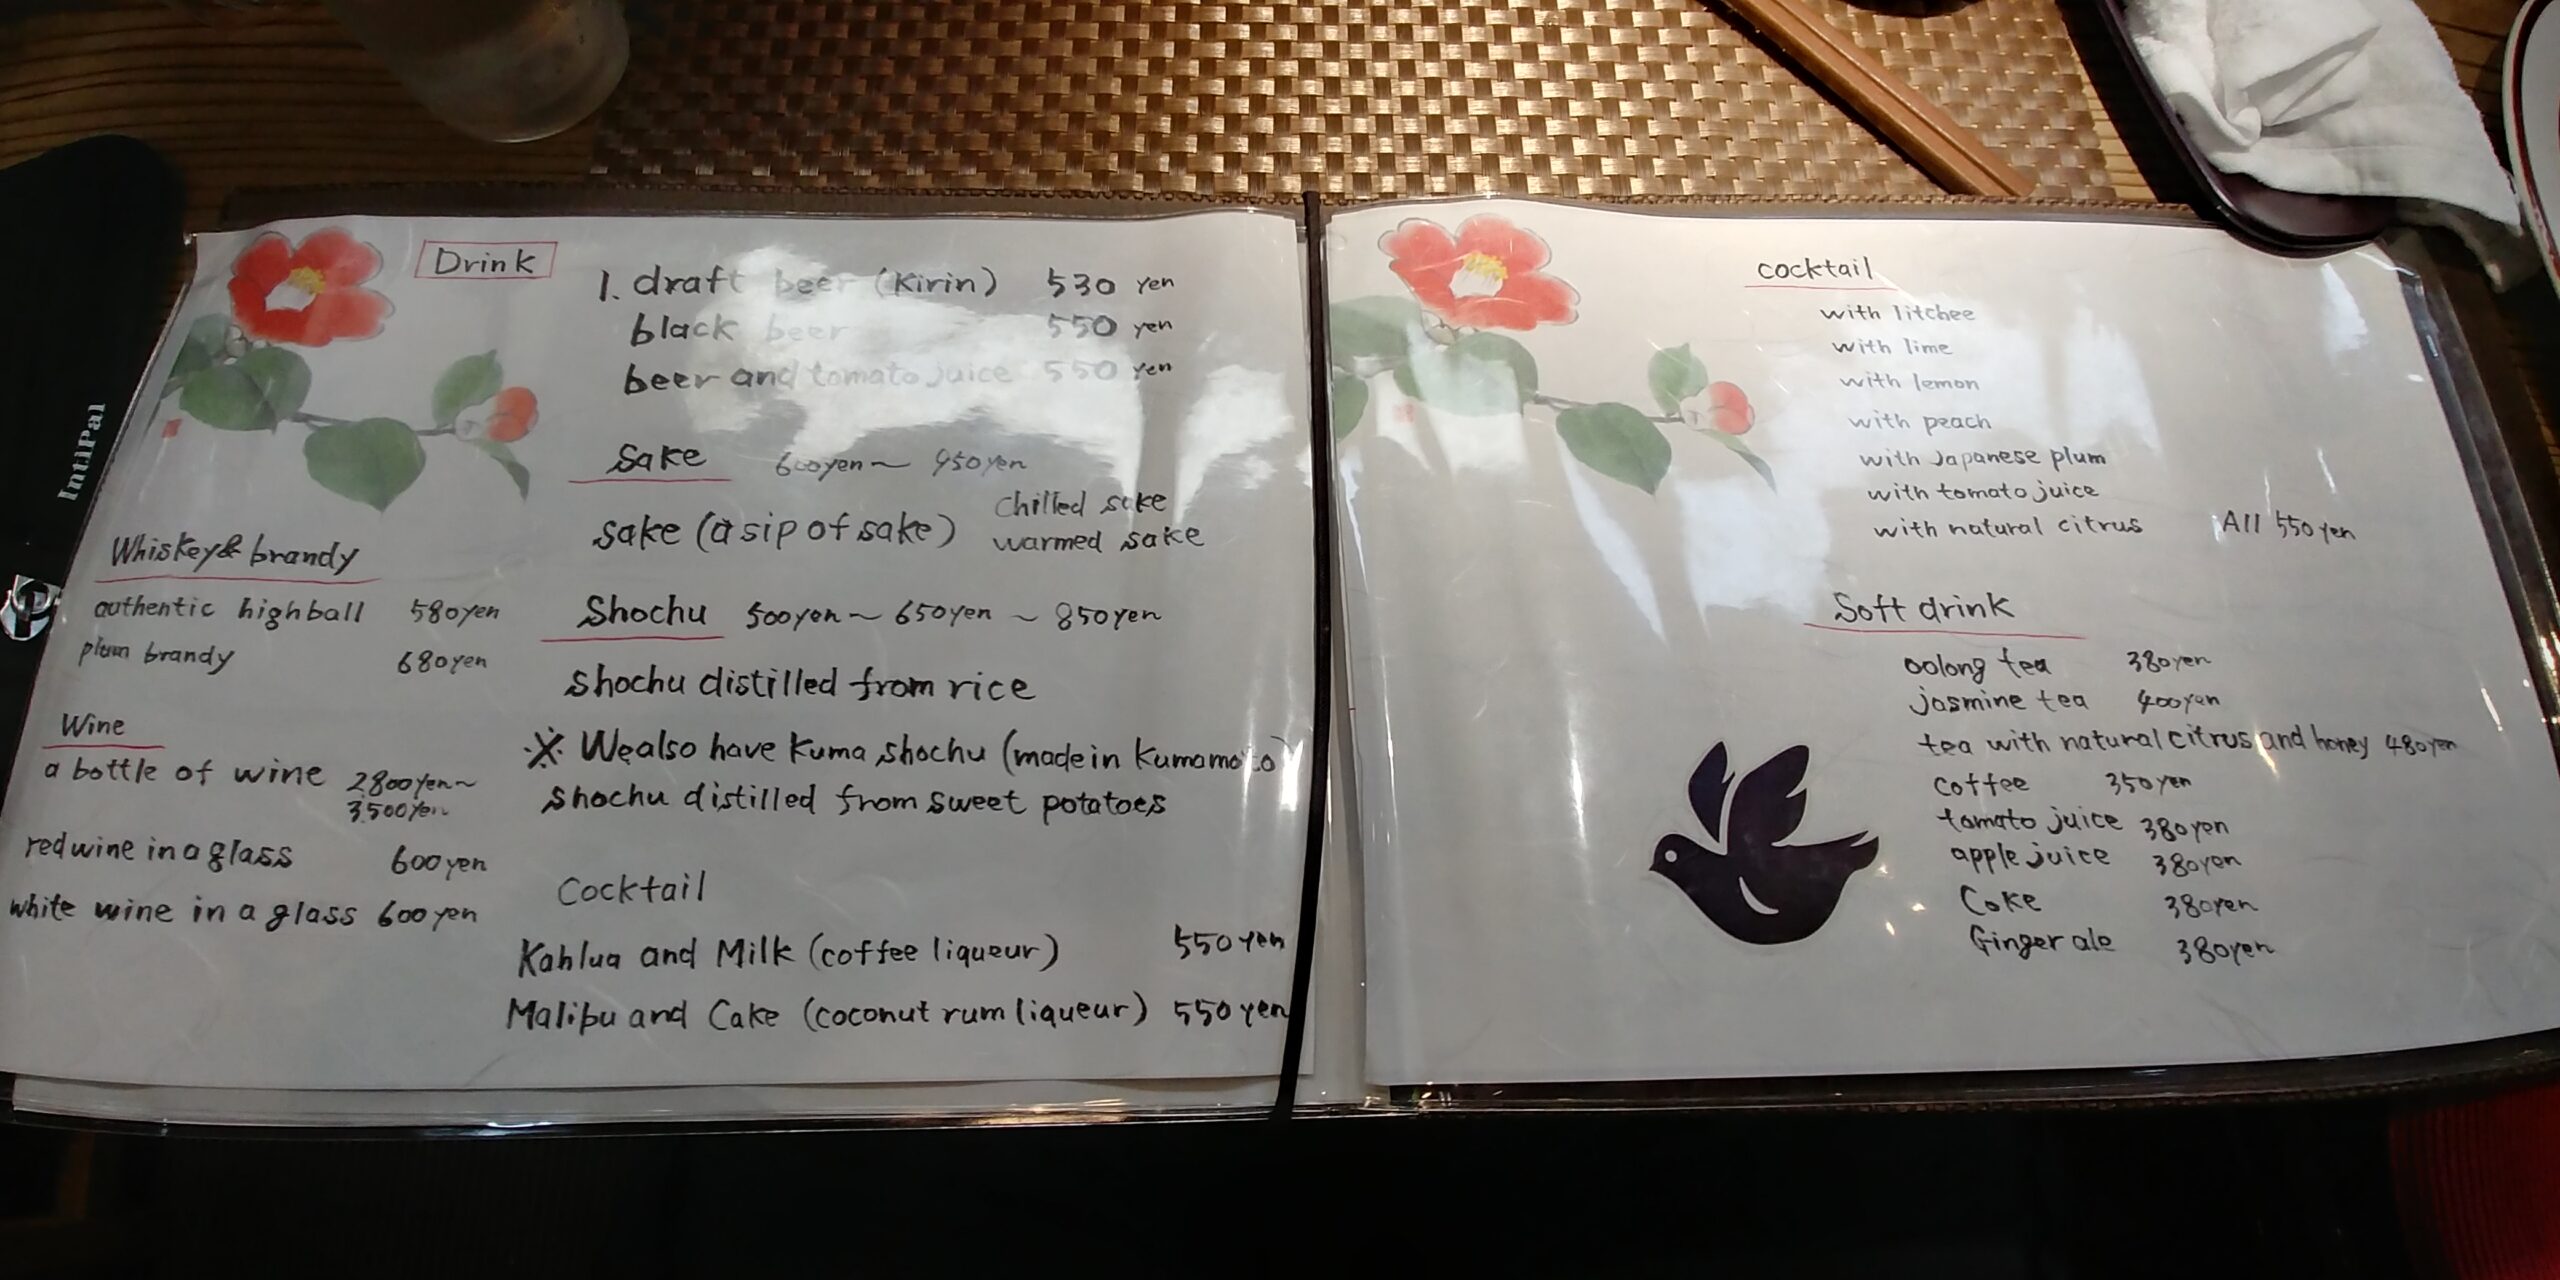 Drink
1. draft beer (Kirin) 530 yen
black beer 550 yen
beer and tomato juice 550 yen
Sake 600yen~ 950yen
sake (a sip of sake) chilled sake
warmed sake
Shochu 500yen~ 650yen ~ 850yen
shochu distilled from rice
※ We also have Kuma shochu (made in Kumamoto)
shochu distilled from sweet potatoes
Cocktail
Kahlua and Milk (coffee liqueur) 550 yen
Malibu and Cake (coconut rum liqueur) 550 yen
Whiskey & brandy
authentic highball 580yen
plum brandy 680yen
Wine
a bottle of wine 2800yen~
3500yen
red wine in a glass 600yen
white wine in a glass 600yen
cocktail
with litchee
with lime
with lemon
with peach
with Japanese plum
with tomato juice
with natural citrus All 550yen
Soft drink
oolong tea 380yen
jasmine tea 400yen
tea with natural citrus and honey 480yen
coffee 350yen
tomato juice 380yen
apple juice 380yen
Coke 380yen
Ginger ale 380yen
IntiPal